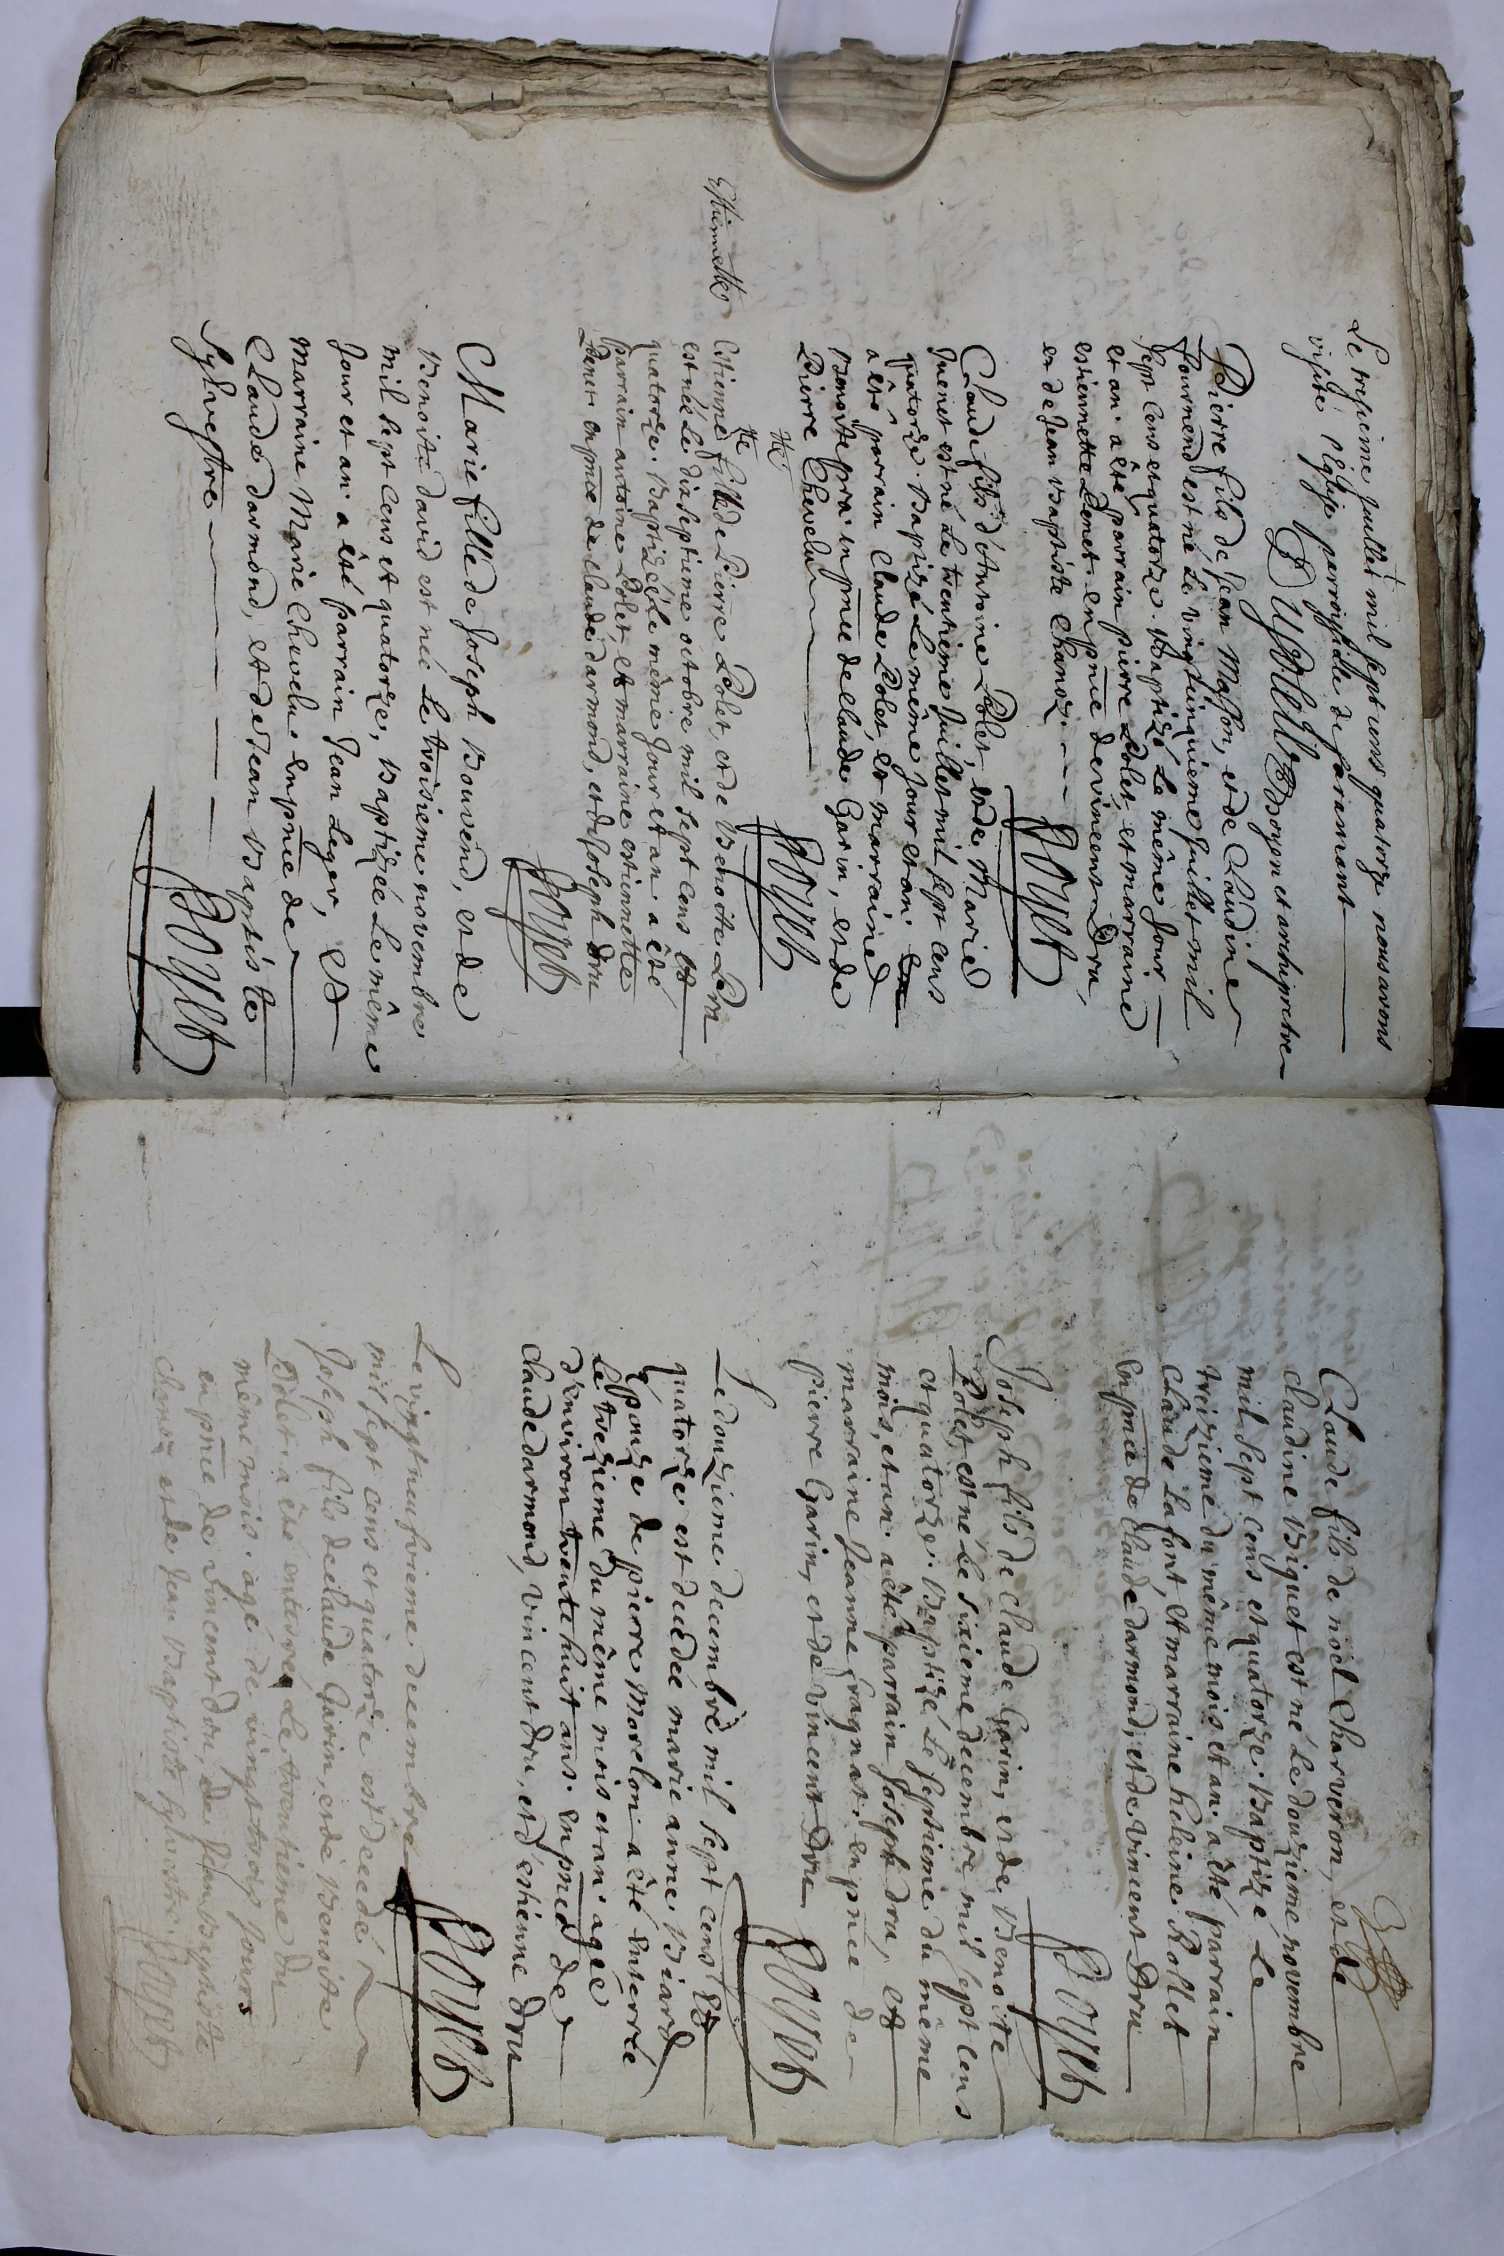 Le tresieme Juillet mil sept cens quatorze nous avons
visité l'église parroissialle de
Doyen et archipretre
Pierre fils de Jean Masson, et de Claudine
est né Le vingtcinquieme Juillet mil
sept cens et quatorze. Baptizé Le même Jour
et an. a êté parrain pierre Polet et marraine
estiennette en pn̄ce de vincent Dru,
et de Jean Baptiste Chanoz
POYET
Claude fils d'Antoine Polet, et de Marie
est né Le trentieme Juillet mil sept cens
quatorze. Baptizé Le même Jour et an.
a êté parrain Claude Polet, et marraine
Benoite en pn̄ce de Claude Garin, et de
Pierre Chevelu
POYET
Estiennette
Estienne tte fille de Pierre Polet, et de Benoite
est née Le dixseptieme octobre mil sept cens et
quatorze. Baptizée Le même Jour et an. a êté
parrain antoine Polet, et marraine estiennette
en pn̄ce de Claude darmond, et de Joseph Dru
POYET
Marie fille de Joseph Bouvend, et de
Benoite david est née Le troisieme novembre
mil sept cens et quatorze, Baptizée Le même
Jour et an. a êté parrain Jean Leger, et
Marraine Marie Chevelu. en pn̄ce de
Claude darmond, et de Jean Baptiste
Sylvestre
POYET
Claude fils de noël Charveron, et de
claudine Biguet est né Le douzieme novembre
mil sept cens et quatorze. Baptizé Le
treizieme du même mois et an. a êté parrain
Claude Lafont, et marraine heleine Rollet
en pn̄ce de Claude darmond, et de vincent Dru
POYET
Joseph fils de claude Garin, et de Benoite
Polet, est né Le sixieme decembre mil sept cens
et quatorze. Baptizé Le septieme du même
mois, et an. a êté parrain Joseph dru, et
marraine Jeanne fragnat. en pn̄ce de
pierre Garin, et de Vincent Dru
POYET
Le douzieme decembre mil sept cens et
quatorze est decedée marie anne Biard
Epouze de pierre Morelon a êté enterrée
Le trezieme du même mois et an. agée
d'environ trente huit ans. en pn̄ce de
claude darmond, vincent Dru, et d'estienne Dru
POYET
Le vingtneufvieme decembre
mil sept cens et quatorze est decedé
Joseph fils de claude Garin, et de Benoite
Polet. a êté enterré Le trentieme du
même mois. agé de vingt trois Jours
en pn̄ce de vincent dru, de Jean Baptiste
chanoz et de Jean Baptiste Sylvestre.
POYET